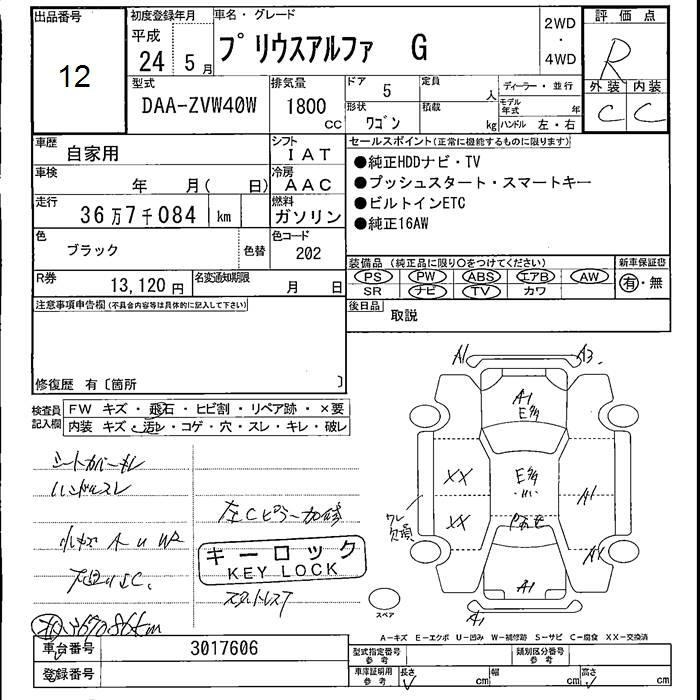 出品番号
12
初度登録年月
平成
24 5 月
車名・グレード
プリウスアルファ G
2WD
・
4WD
評価点
R
外装 内装
C C
型式
DAA-ZVW40W
排気量
1800
CC
ドア 5
定員 人
形状
ワゴン
積載 kg
ディーラー・並行
モデル年式 年
ハンドル 左・右
車歴 自家用
シフト IAT
車検 年 月( 日)
冷房 AAC
走行 36万7千084 km
燃料 ガソリン
色 ブラック 色替
色コード 202
R券 13,120円
名変通知期限 月 日
セールスポイント(正常に機能するものに限ります)
●純正HDDナビ・TV
●プッシュスタート・スマートキー
●ビルトインETC
●純正16AW
装備品(純正品に限り○をつけてください)
PS PW ABS エアB AW
SR ナビ TV カワ
新車保証書
有・無
後日品 取説
注意事項申告欄(不具合内容等は具体的に記入して下さい)
修復歴 有〔箇所 〕
検査員記入欄
FW キズ・飛石・ヒビ割・リペア跡・×要
内装 キズ・汚レ・コゲ・穴・スレ・キレ・破レ
シートカバー
ハンドルスレ
小キズ A U W2
下廻りS C.
左Cピラー加修
キーロック
KEY LOCK
367086km
A1 A3
A1
XX
XX
ワレ
欠損
A1
A1
A1
スペア
A-キズ E-エクボ U-凹み W-補修跡 S-サビ C-腐食 XX-交換済
車台番号 3017606
登録番号
型式指定番号
参考
類別区分番号
参考
車庫証明用
参考
長さ cm
幅 cm
高さ cm